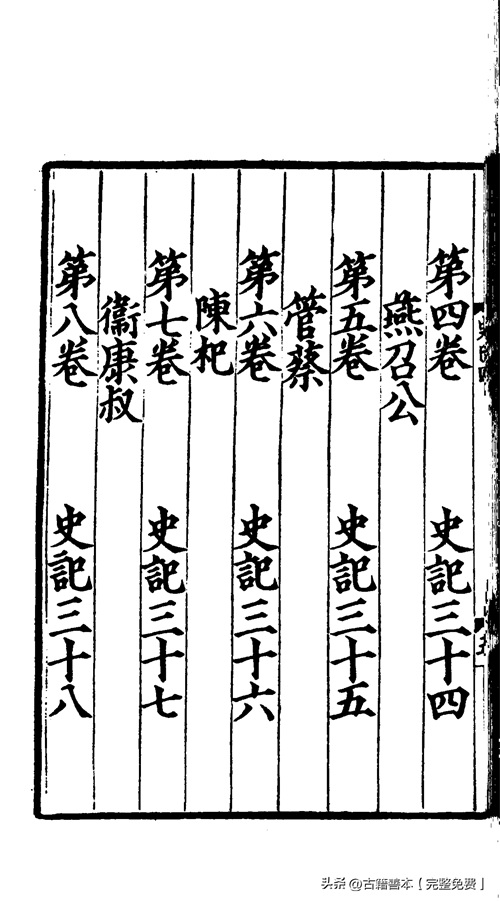 第四卷 史記三十四
燕召公
第五卷 史記三十五
管蔡
第六卷 史記三十六
陳杞
第七卷 史記三十七
衞康叔
第八卷 史記三十八
头条 @古籍善本【完整免费】